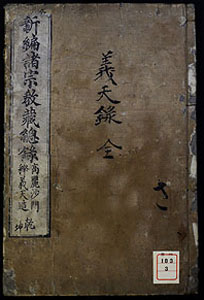 さ
義天錄 全
新編諸宗教藏總錄
高麗沙門
釋義天
乾
坤
3